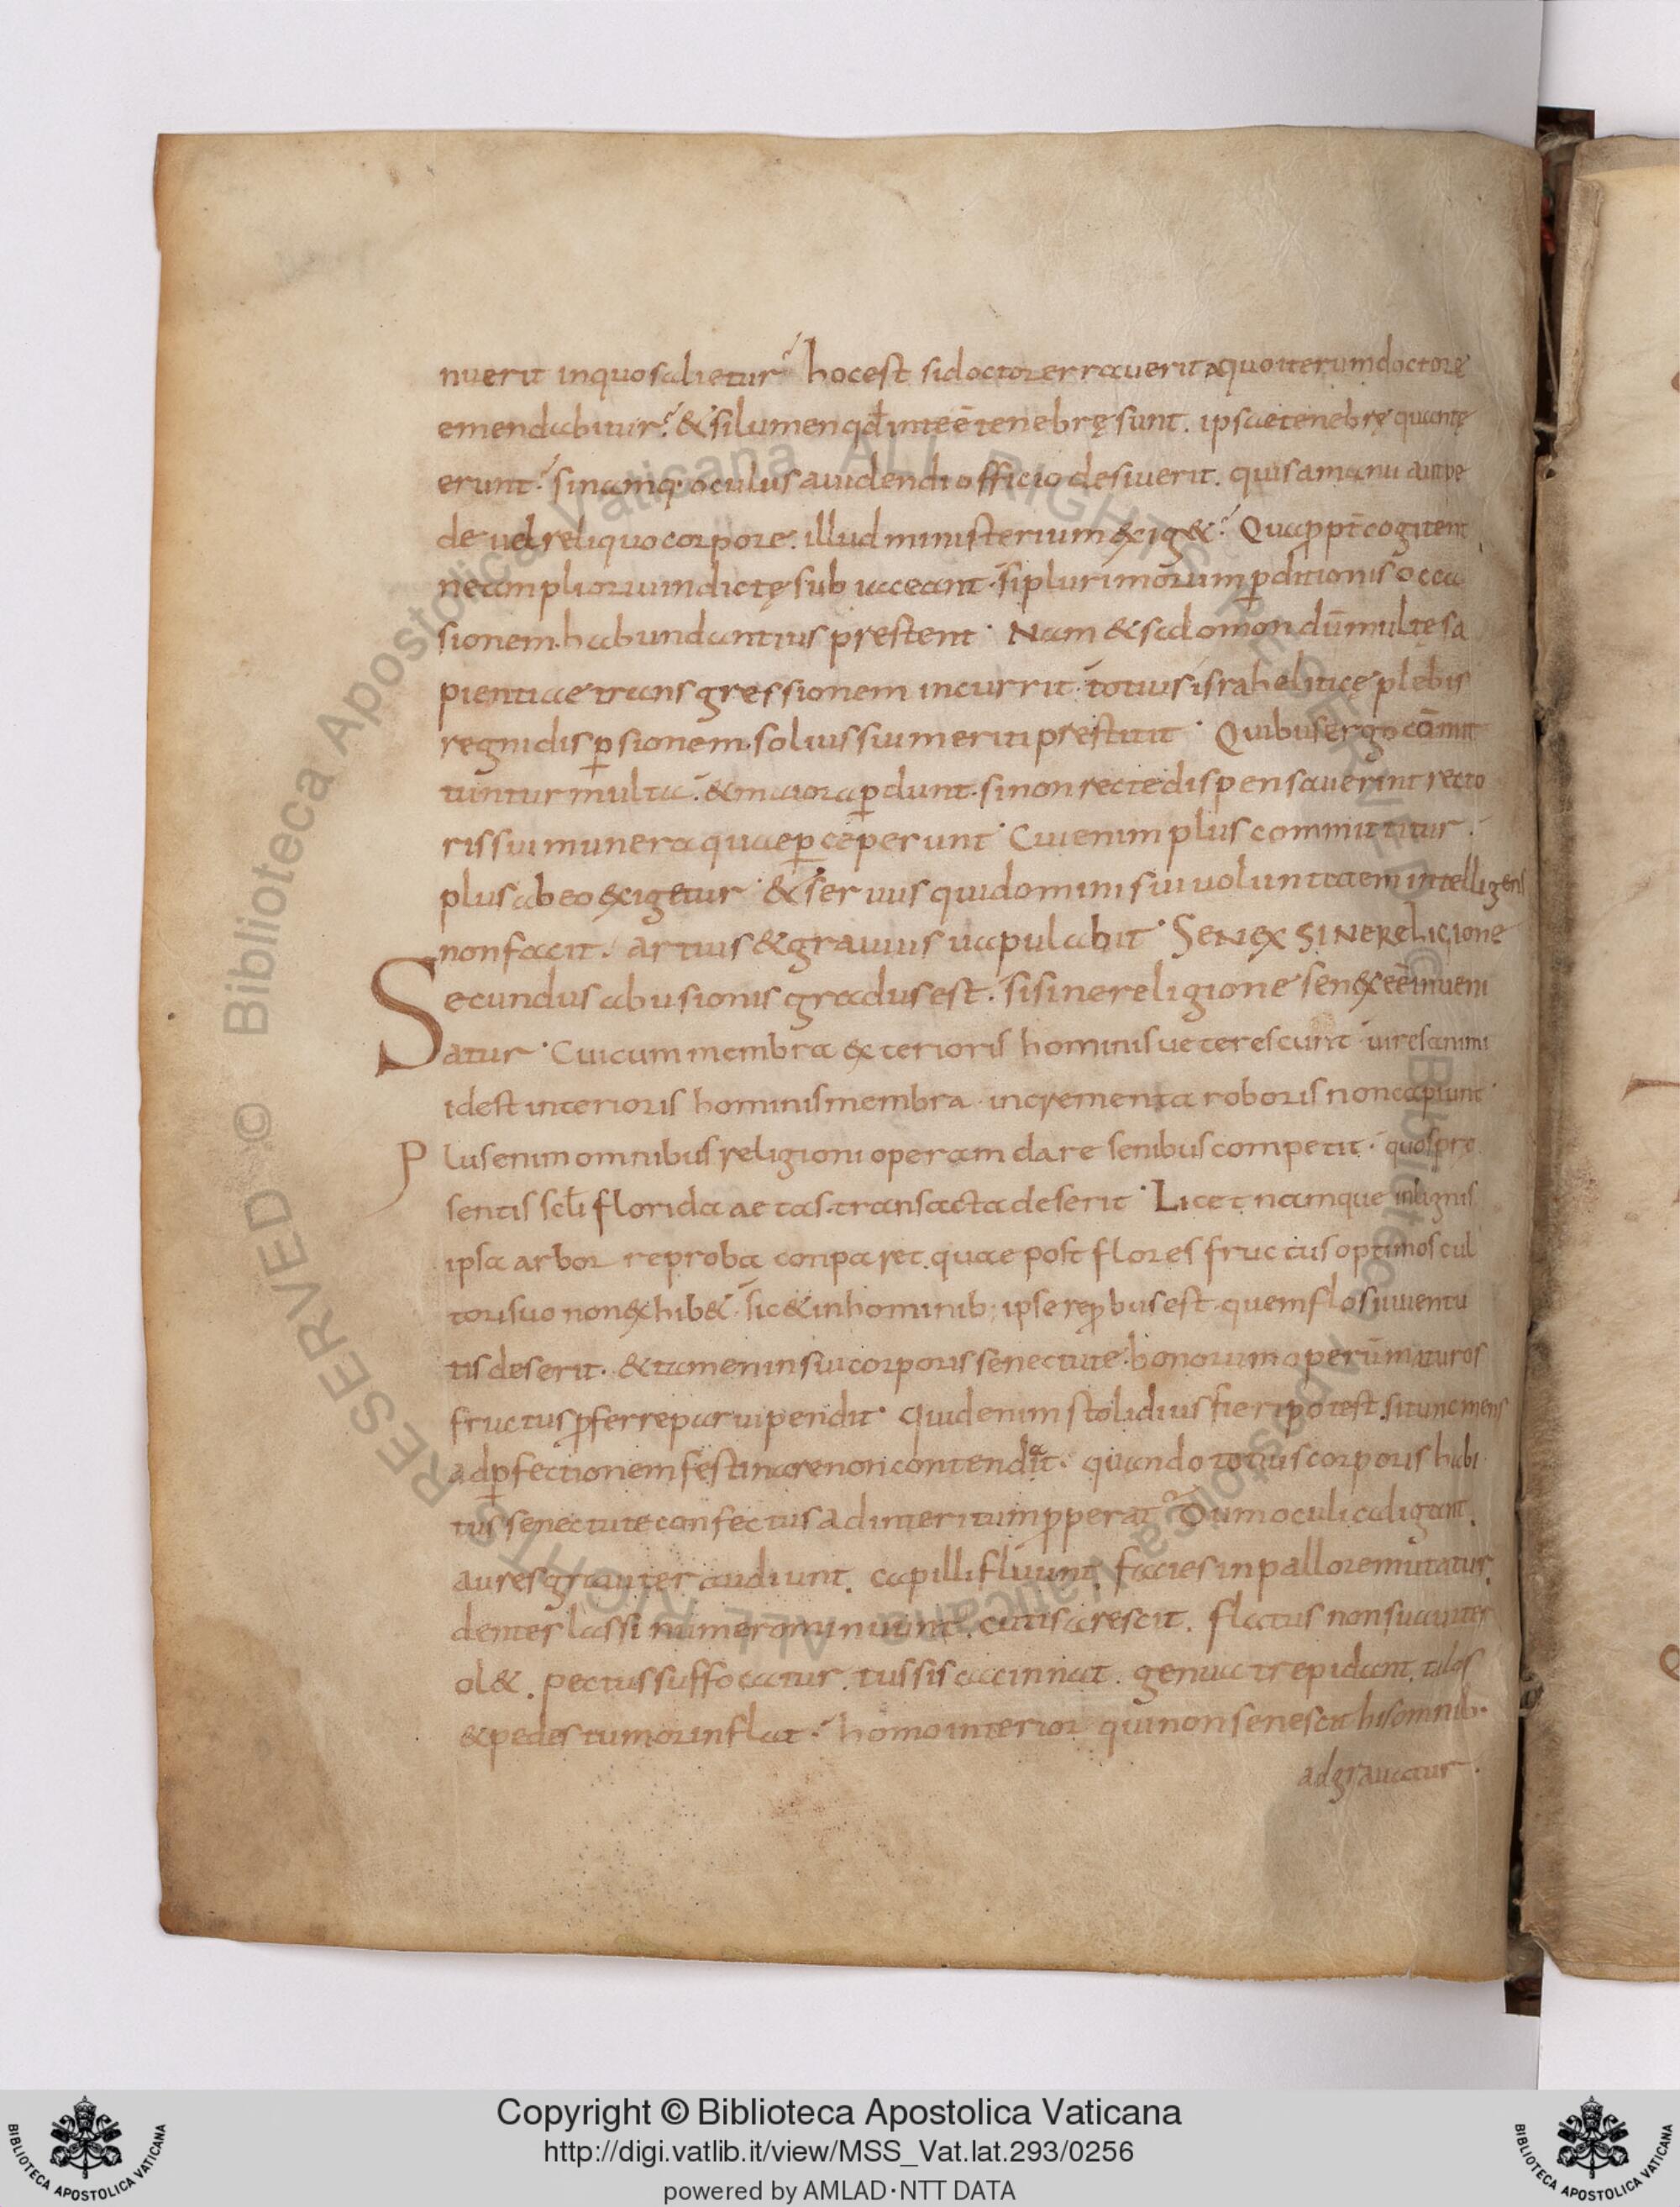 nuerit inquo salietur hocest sidoctor erraverit aquo iterum doctorę
emendabitur & si lumen qđ inte ē tenebrę sunt. ipsae tenebrę quantę
erunt sinamq· oculus auidendi officio desiuerit. quis amanu autpe
de vel reliquo corpore. illud ministerium exig& Quapp̄t cogitent
ne ampliori uindictę sub iaceant· si plurimorum ꝑditionis occa
sionem habundantius prestent· Nam & salomon dū multę sa
pientiae transgressionem incurrit· totius israheliticę plebis
regni disꝑsionem solius sui meriti prestitit· Quibus ergo cōmit
tuntur multa. & maiora ꝑdunt· sinon recte dispensaverint recto
ris sui munera quae ꝑceperunt· Cui enim plus committitur.
plus abeo exigetur· & servus qui domini sui voluntaem intelligens
non facit. artius & gravius vapulabit· SENEX SINE RELIGIONE
Secundus abusionis gradus est. si sine religione senex eē inveni
atur· Cui cum membra exterioris hominis veterescunt vires animi
idest interioris hominis membra· incrementa roboris non capiunt·
Plus enim omnibus religioni operam dare senibus competit· quos pre
sentis scłi florida aetas· transacta deserit· Licet namque in lignis
ipsa arbor reproba conparet. quae post flores fructus optimos cul
tori suo non exhib& sic & in hominib; ipse reꝓbus est· quem flos iuventu
tis deserit. & tamen in sui corporis senectute· bonorum operum maturos
fructus ꝓferre parvipendit· Quid enim stolidius fieri potest. situnc mens
ad ꝑfectionem festinare non contendat· quando totius corporis habi
tus senectute confectus ad interitum ꝓperat Dum oculi caligant.
aures graviter audiunt. capilli fluunt. facies in pallorem mutatur.
dentes lassi numero minuunt. cutis arescit. flatus non suaviter
ol&. pectus suffocatur. tussis cacinnat. genua trepidant. talos
& pedes tumor inflat· homo interior qui non senescit his omnib·
adgravatur.
Copyright © Biblioteca Apostolica Vaticana
http://digi.vatlib.it/view/MSS_Vat.lat.293/0256
powered by AMLAD·NTT DATA
BIBLIOTECA APOSTOLICA VATICANA
BIBLIOTECA APOSTOLICA VATICANA
© Biblioteca Apostolica Vaticana ALL RIGHTS RESERVED
© Biblioteca Apostolica Vaticana ALL RIGHTS RESERVED